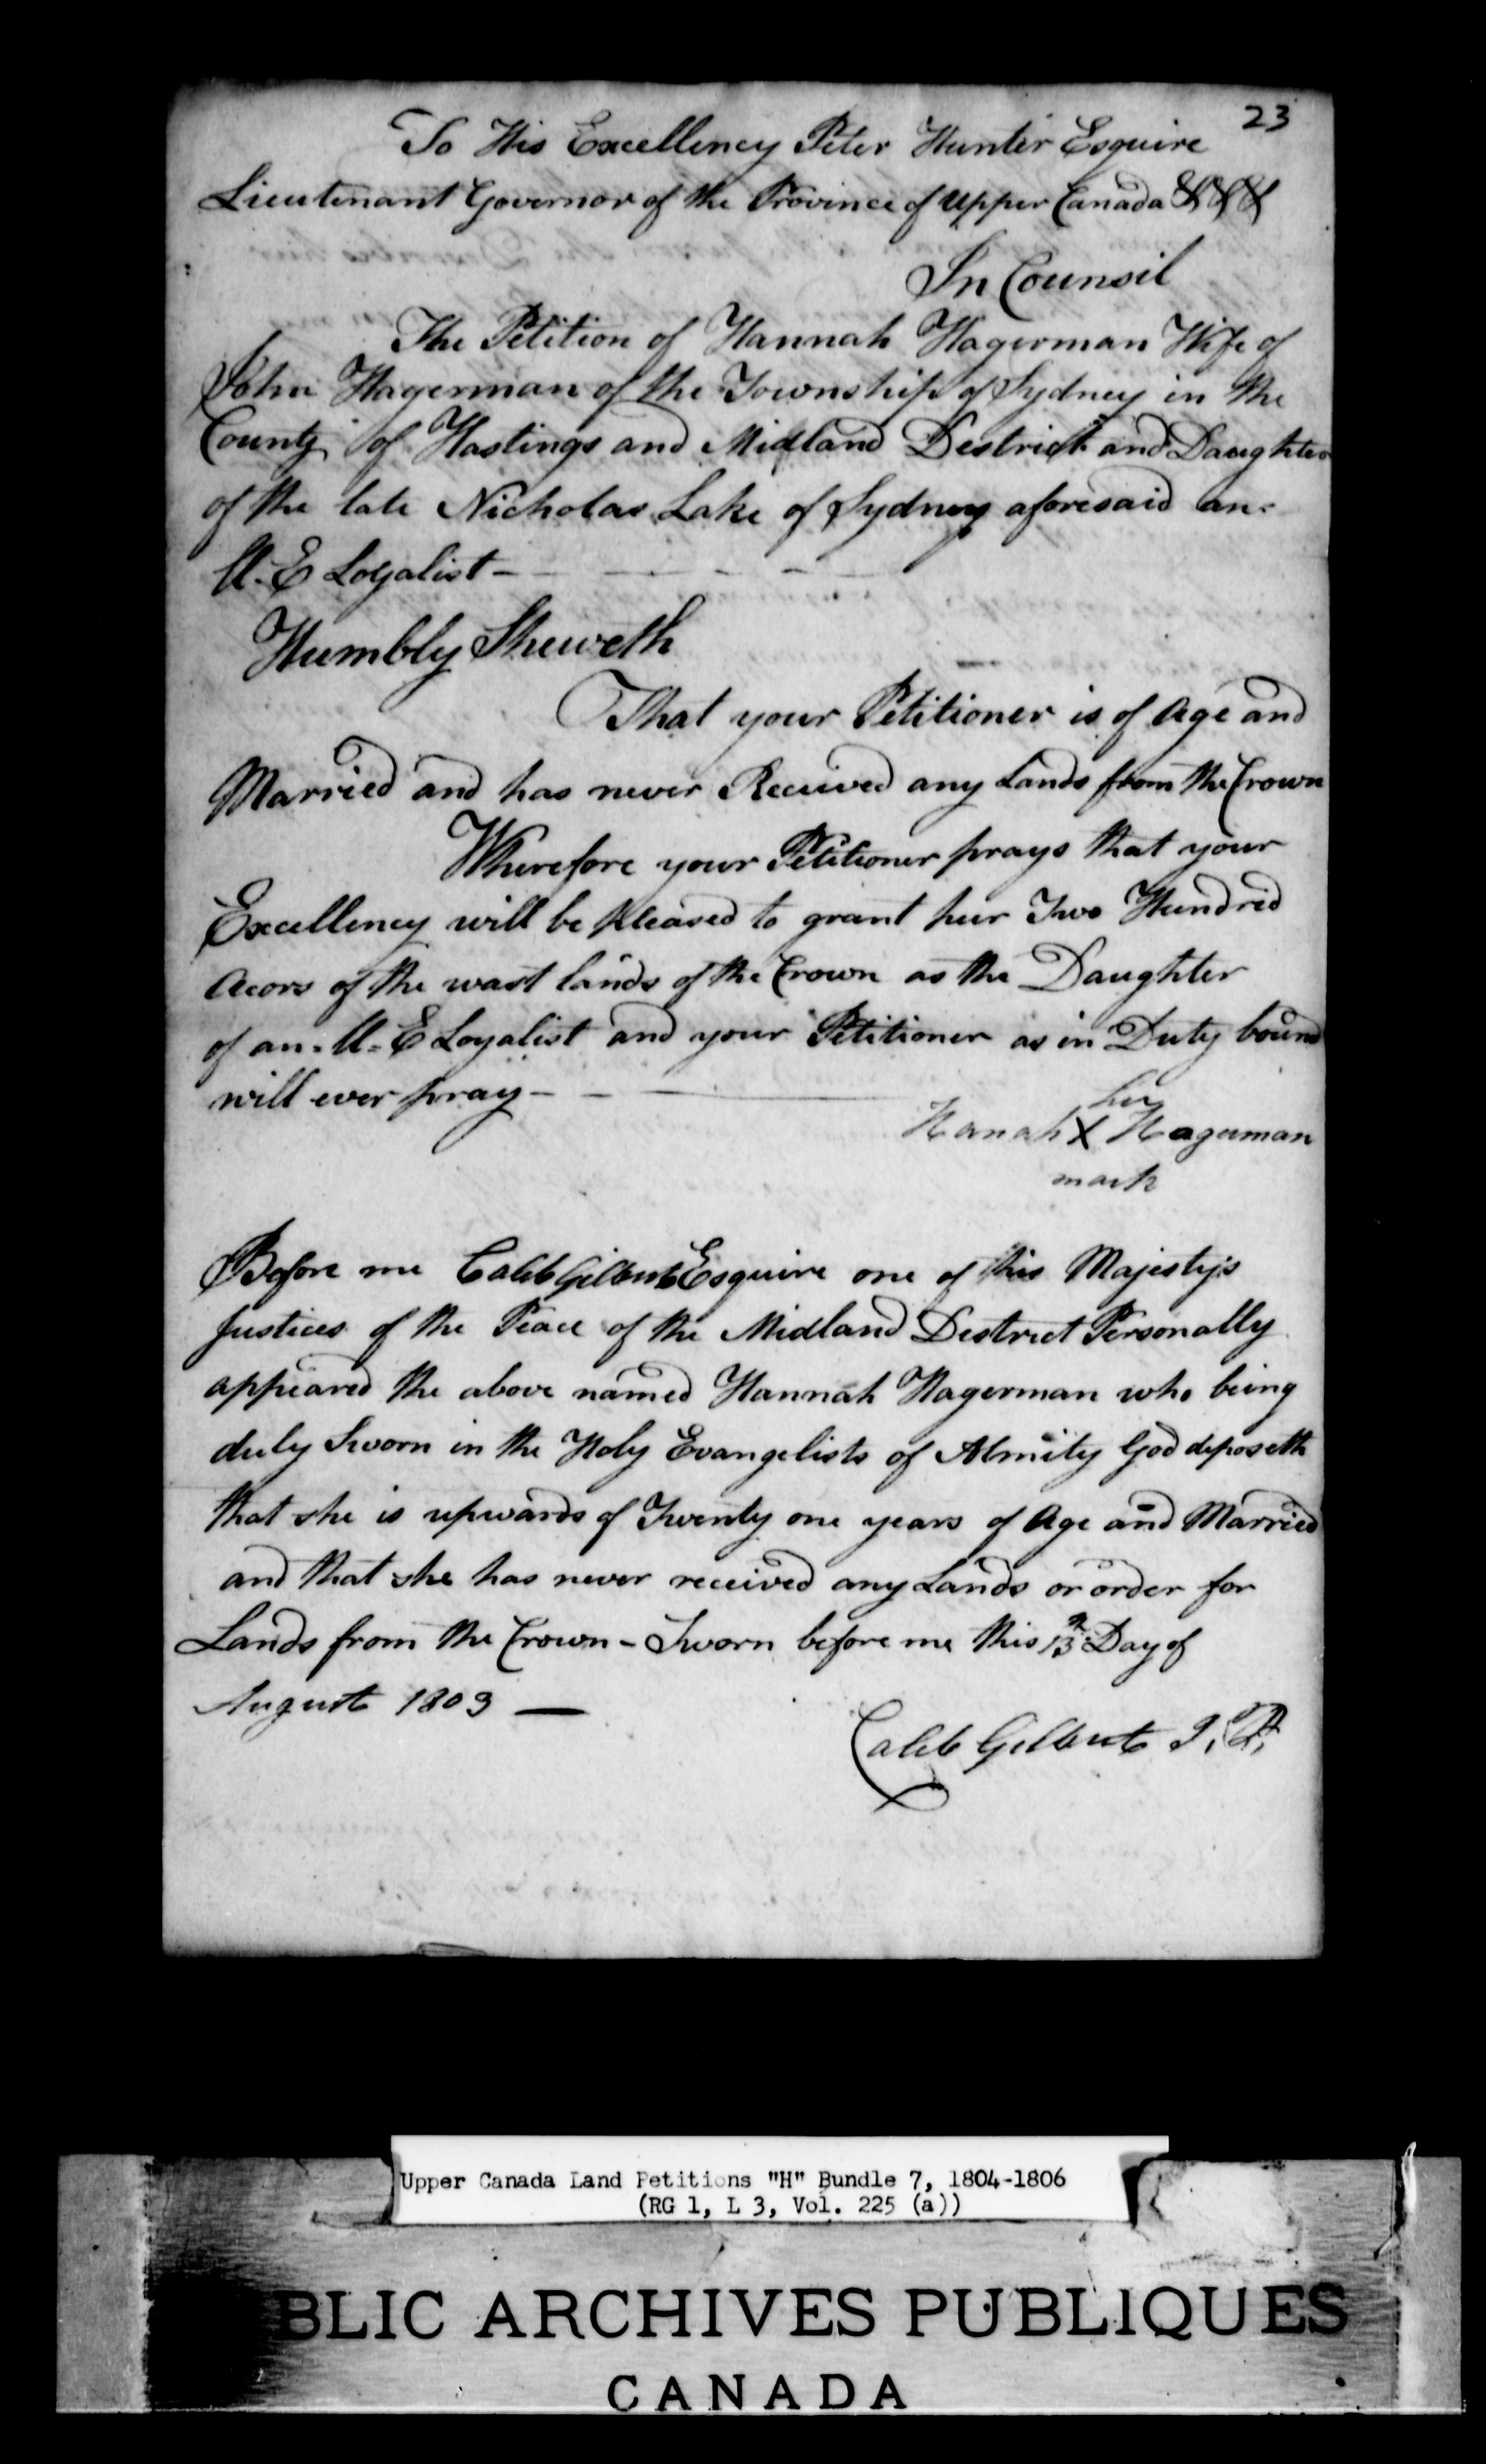 23
To His Excellency Peter Hunter Esquire
Lieutenant Governor of the Province of Upper Canada & & &
In Counsil
The Petition of Hannah Hagerman Wife of
John Hagerman of the Township of Sydney in the
County of Hastings and Midland Destrict and Daughter
of the late Nicholas Lake of Sydney aforesaid an-
U-E Loyalist-
Humbly Sheweth
That your Petitioner is of Age and
Married and has never Received any Lands from the Crown
Wherefore your Petitioner prays that your
Excellency will be pleased to grant her Two Hundred
Acors of the wast lands of the Crown as the Daughter
of an-U-E Loyalist and your Petitioner as in Duty bound
will ever pray-
her
Hanah X Hagerman
mark
Before me Caleb Gilbert Esquire one of his Majesty's
Justices of the Peace of the Midland Destrict Personally
appeared the above named Hannah Hagerman who being
duly Sworn in the Holy Evangelists of Almity God deposeth
that she is upwards of Twenty one years of Age and Married
and that she has never received any Lands or order for
Lands from the Crown - Sworn before me this 13th Day of
August 1803 —
Caleb Gilbert J. P.
Upper Canada Land Petitions "H" Bundle 7, 1804-1806
(RG 1, L 3, Vol. 225 (a))
BLIC ARCHIVES PUBLIQUES
CANADA